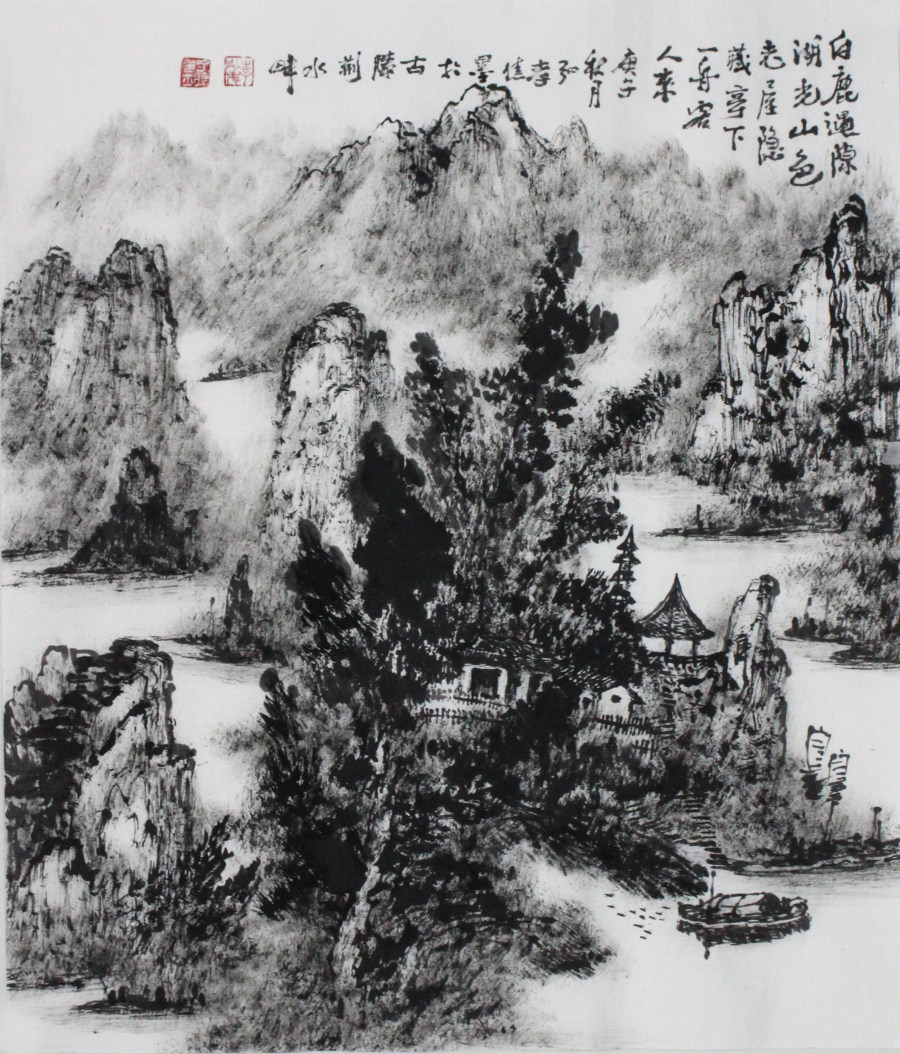 白鹿過隙
湖光山色
老屋隐
藏亭下
一舟客
人来
庚子
秋月
弘
孝
佳
墨
于
古
滕
荆
水
畔